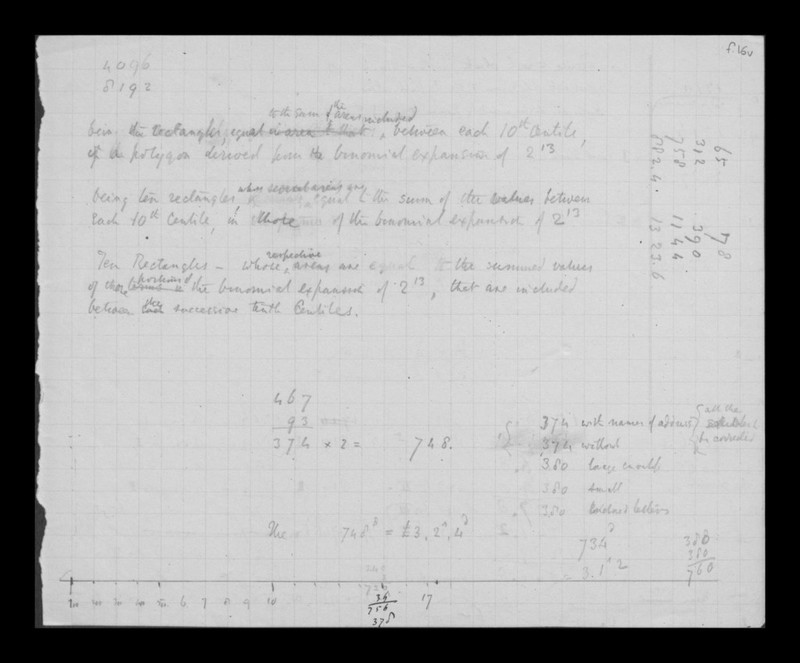 f.16v
4096
8192
with sum of the areas included
being the rectangles, equal in area to that, between each 10th Centile,
of a polygon derived from the binomial expansion of 2^13
whose several areas are
being ten rectangles, equal to the sum of the values between
each 10th Centile, in those of the binomial expansion of 2^13
respective
Ten Rectangles – whose areas are equal to the summed values
portions of
of those the binomial expansion of 2^13, that are included
the
between each successive tenth Centiles.
65 78
312 390
758 1144
682.4. 1323.6
467
93
374 × 2 = 748.
374 with names of
374 without
380 large
380 small
380 letters
all the
be corrected
The 748d = £3, 2s, 4d
734d
3.1s 2
380
380
760
6 7 8 9 10 17
36
756
378